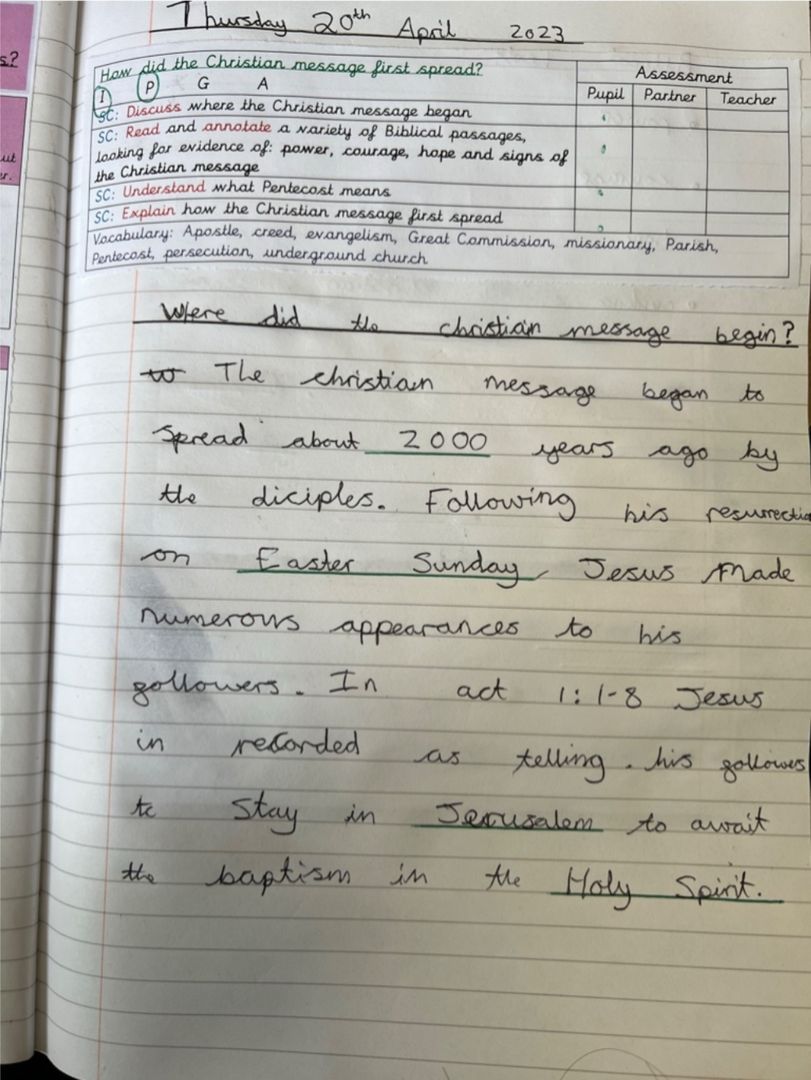 Thursday 20th April 2023
s?
ut
er.
How did the Christian message first spread?
I P G A
Assessment
Pupil Partner Teacher
SC: Discuss where the Christian message began
SC: Read and annotate a variety of Biblical passages,
looking for evidence of: power, courage, hope and signs of
the Christian message
SC: Understand what Pentecost means
SC: Explain how the Christian message first spread
Vocabulary: Apostle, creed, evangelism, Great Commission, missionary, Parish,
Pentecost, persecution, underground church
Where did the christian message begin?
The christian message began to
spread about 2000 years ago by
the diciples. Following his resurrectio
on Easter Sunday, Jesus made
numerous appearances to his
gollowers. In act 1:1-8 Jesus
in recorded as telling. his gollowes
to stay in Jerusalem to await
the baptism in the Holy Spirit.